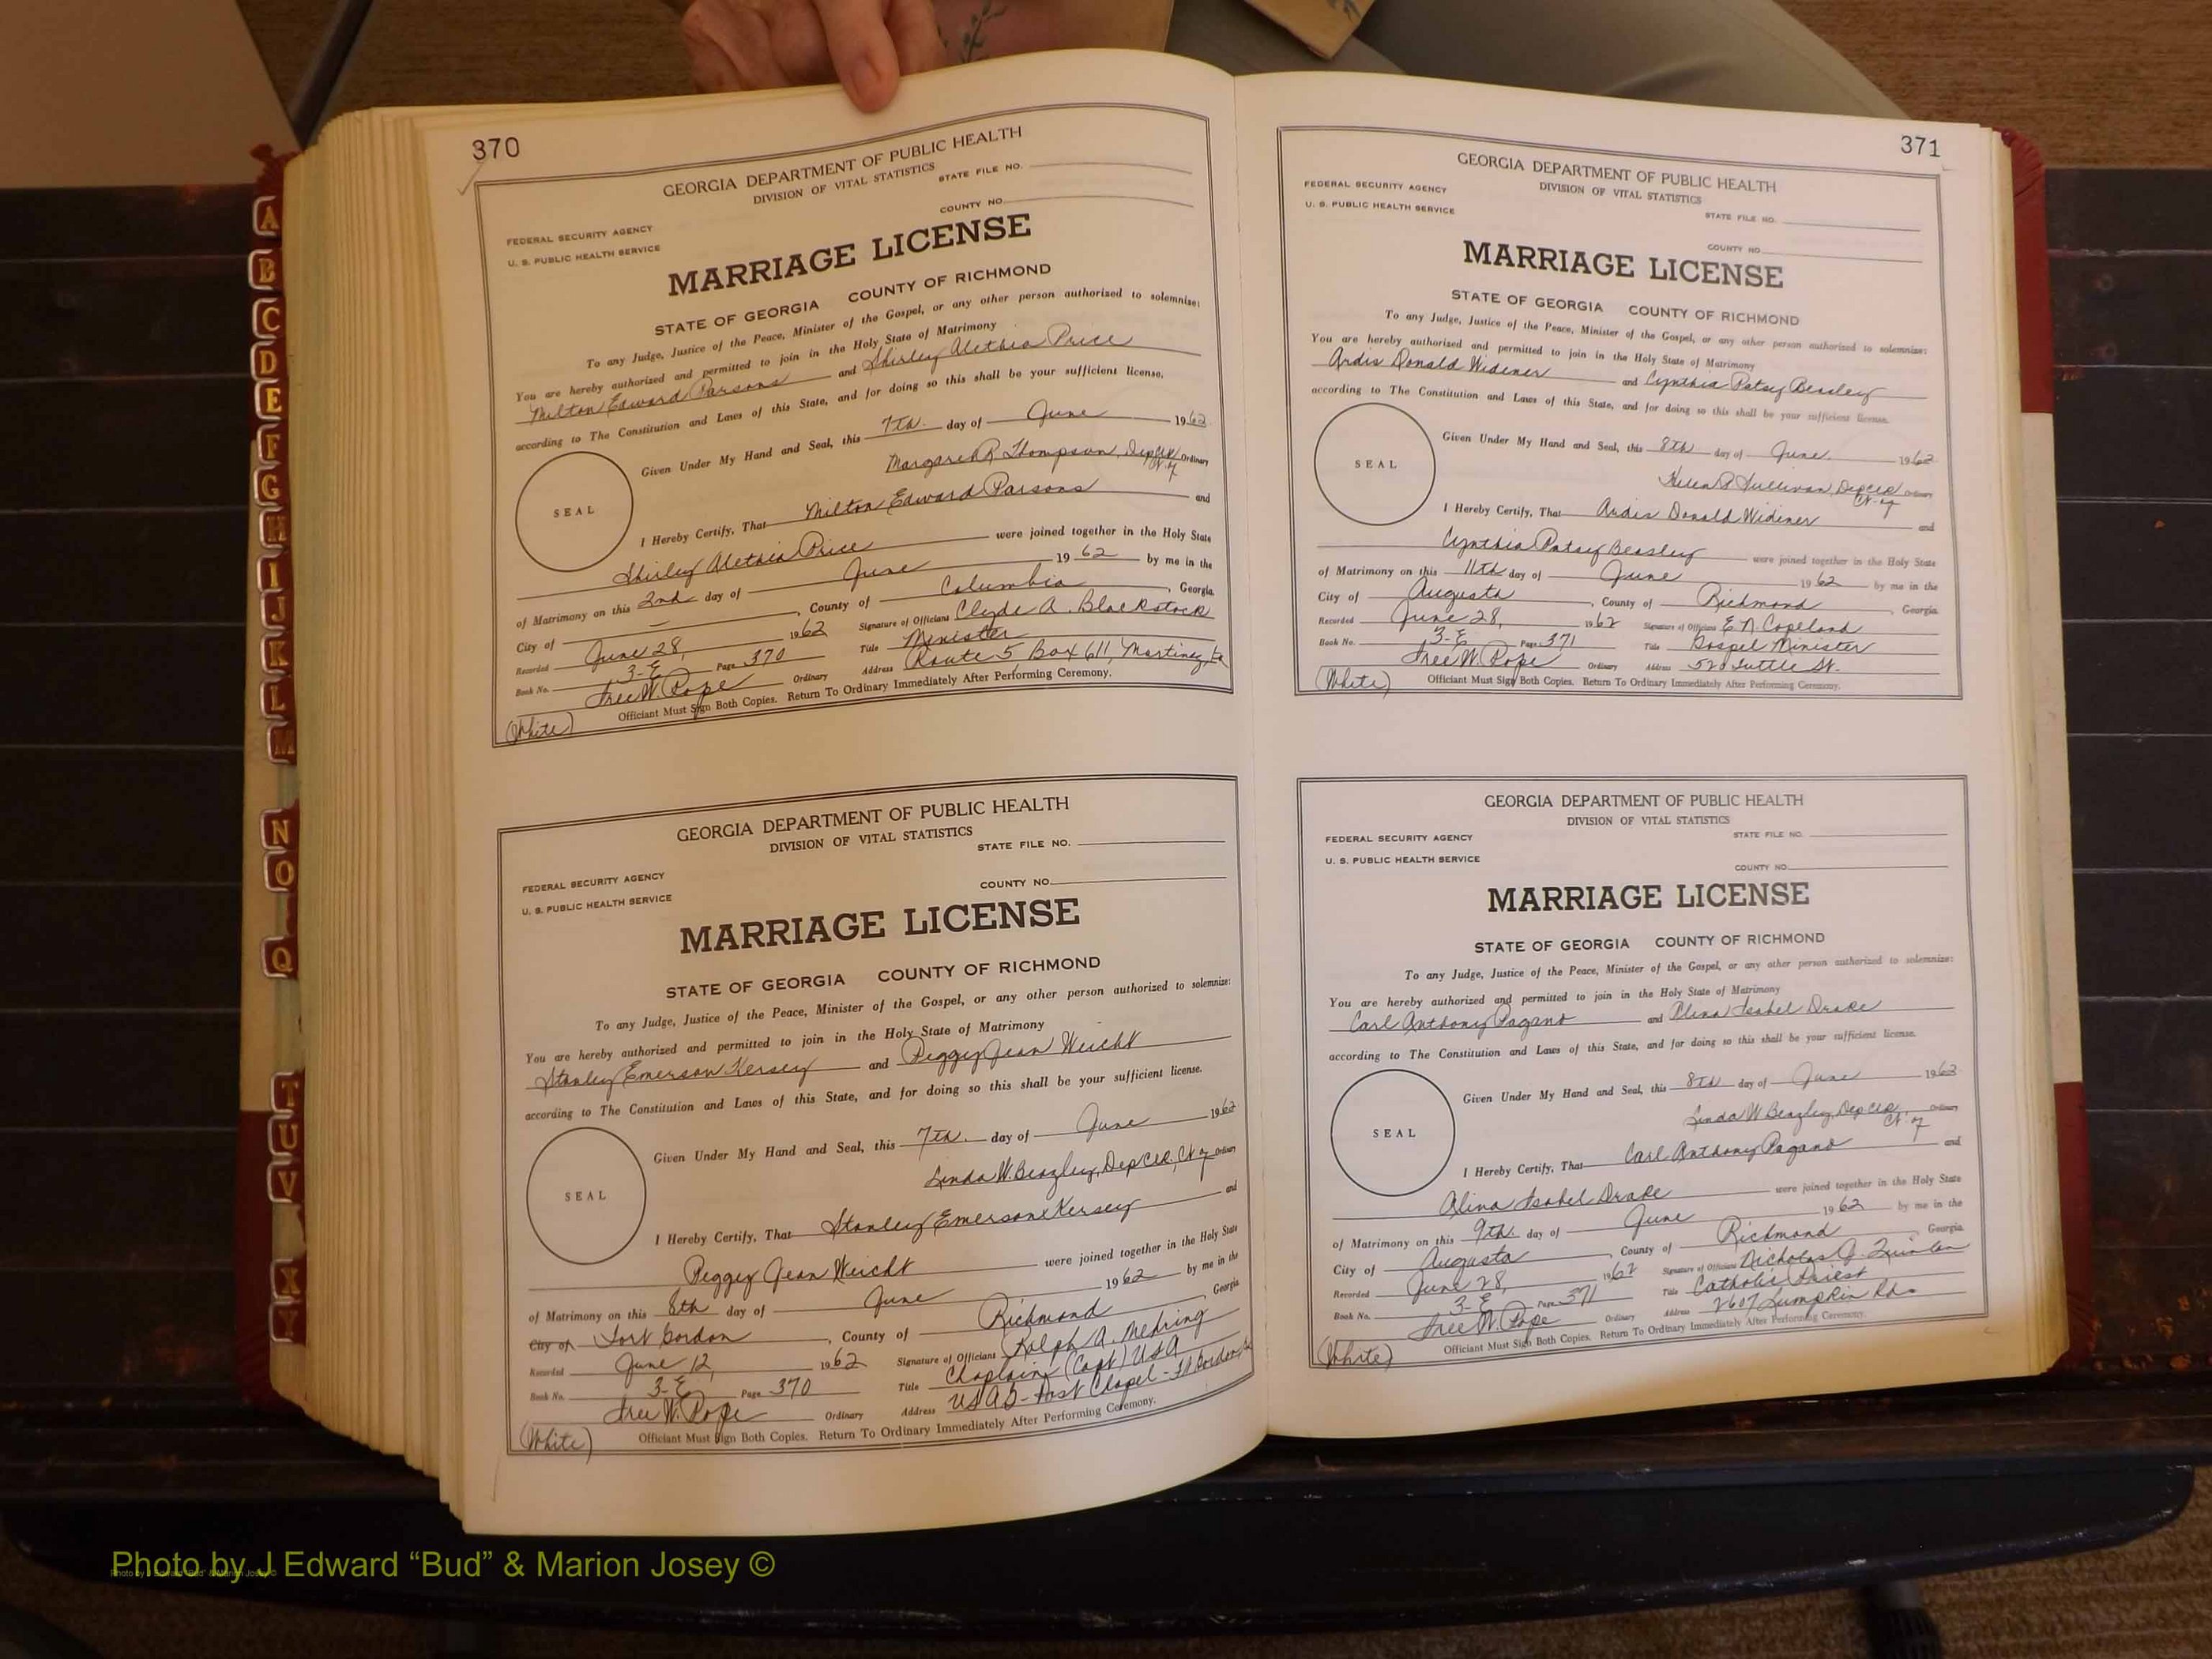 A
B
C
D
E
F
G
H
I
J
K
L
M
N
O
Q
T
U
V
X
Y
370
GEORGIA DEPARTMENT OF PUBLIC HEALTH
DIVISION OF VITAL STATISTICS
STATE FILE NO.
COUNTY NO.
FEDERAL SECURITY AGENCY
U. S. PUBLIC HEALTH SERVICE
MARRIAGE LICENSE
STATE OF GEORGIA COUNTY OF RICHMOND
To any Judge, Justice of the Peace, Minister of the Gospel, or any other person authorized to solemnize:
You are hereby authorized and permitted to join in the Holy State of Matrimony
Milton Edward Parsons and Shirley Alethia Price
according to The Constitution and Laws of this State, and for doing so this shall be your sufficient license.
Given Under My Hand and Seal, this 7th. day of June 1962
Margaret R. Thompson, Dep Clk Ordinary
Ct. of
SEAL
I Hereby Certify, That Milton Edward Parsons and
Shirley Alethia Price were joined together in the Holy State
of Matrimony on this 2nd day of June 1962 by me in the
City of — , County of Columbia , Georgia.
Recorded June 28, 1962 Signature of Officiant Clyde A. Blackstock
Book No. 3-E Page 370 Title Minister
Tree W. Pope Ordinary Address Route 5 Box 611, Martinez, Ga
(White) Officiant Must Sign Both Copies. Return To Ordinary Immediately After Performing Ceremony.
GEORGIA DEPARTMENT OF PUBLIC HEALTH
DIVISION OF VITAL STATISTICS
STATE FILE NO.
COUNTY NO.
FEDERAL SECURITY AGENCY
U. S. PUBLIC HEALTH SERVICE
MARRIAGE LICENSE
STATE OF GEORGIA COUNTY OF RICHMOND
To any Judge, Justice of the Peace, Minister of the Gospel, or any other person authorized to solemnize:
You are hereby authorized and permitted to join in the Holy State of Matrimony
Stanley Emerson Kersey and Peggy Jean Weicht
according to The Constitution and Laws of this State, and for doing so this shall be your sufficient license.
Given Under My Hand and Seal, this 7th. day of June 1962
Linda W. Beazley, Dep Clk, Ct of Ordinary
SEAL
I Hereby Certify, That Stanley Emerson Kersey and
Peggy Jean Weicht were joined together in the Holy State
of Matrimony on this 8th day of June 1962 by me in the
City of Fort Gordon , County of Richmond , Georgia
Recorded June 12, 1962 Signature of Officiant Ralph A. Mehring
Book No. 3-E Page 370 Title Chaplain (Capt) USA
Tree W. Pope Ordinary Address USAG - Post Chapel - Ft Gordon Ga
(White) Officiant Must Sign Both Copies. Return To Ordinary Immediately After Performing Ceremony.
371
GEORGIA DEPARTMENT OF PUBLIC HEALTH
DIVISION OF VITAL STATISTICS
STATE FILE NO.
COUNTY NO.
FEDERAL SECURITY AGENCY
U. S. PUBLIC HEALTH SERVICE
MARRIAGE LICENSE
STATE OF GEORGIA COUNTY OF RICHMOND
To any Judge, Justice of the Peace, Minister of the Gospel, or any other person authorized to solemnize:
You are hereby authorized and permitted to join in the Holy State of Matrimony
Ardis Donald Widener and Cynthia Patsy Beasley
according to The Constitution and Laws of this State, and for doing so this shall be your sufficient license.
Given Under My Hand and Seal, this 8th day of June 1962
Helen P. Sullivan, Dep Clk Ordinary
Ct. of
SEAL
I Hereby Certify, That Ardis Donald Widener and
Cynthia Patsy Beasley were joined together in the Holy State
of Matrimony on this 11th day of June 1962 by me in the
City of Augusta , County of Richmond , Georgia
Recorded June 28, 1962 Signature of Officiant E N Copeland
Book No. 3-E Page 371 Title Gospel Minister
Tree W. Pope Ordinary Address 520 Tuttle St.
(White) Officiant Must Sign Both Copies. Return To Ordinary Immediately After Performing Ceremony.
GEORGIA DEPARTMENT OF PUBLIC HEALTH
DIVISION OF VITAL STATISTICS
STATE FILE NO.
COUNTY NO.
FEDERAL SECURITY AGENCY
U. S. PUBLIC HEALTH SERVICE
MARRIAGE LICENSE
STATE OF GEORGIA COUNTY OF RICHMOND
To any Judge, Justice of the Peace, Minister of the Gospel, or any other person authorized to solemnize:
You are hereby authorized and permitted to join in the Holy State of Matrimony
Carl Anthony Pagano and Alina Isabel Drake
according to The Constitution and Laws of this State, and for doing so this shall be your sufficient license.
Given Under My Hand and Seal, this 8th day of June 1962
Linda W Beazley, Dep Clk, Ordinary
Ct. of
SEAL
I Hereby Certify, That Carl Anthony Pagano and
Alina Isabel Drake were joined together in the Holy State
of Matrimony on this 9th. day of June 1962 by me in the
City of Augusta , County of Richmond , Georgia
Recorded June 28, 1962 Signature of Officiant Nicholas J. Quinlan
Book No. 3-E Page 371 Title Catholic Priest
Tree W. Pope Ordinary Address 2607 Lumpkin Rd.
(White) Officiant Must Sign Both Copies. Return To Ordinary Immediately After Performing Ceremony.
Photo by J Edward “Bud” & Marion Josey ©
Photo by J Edward “Bud” & Marion Josey ©